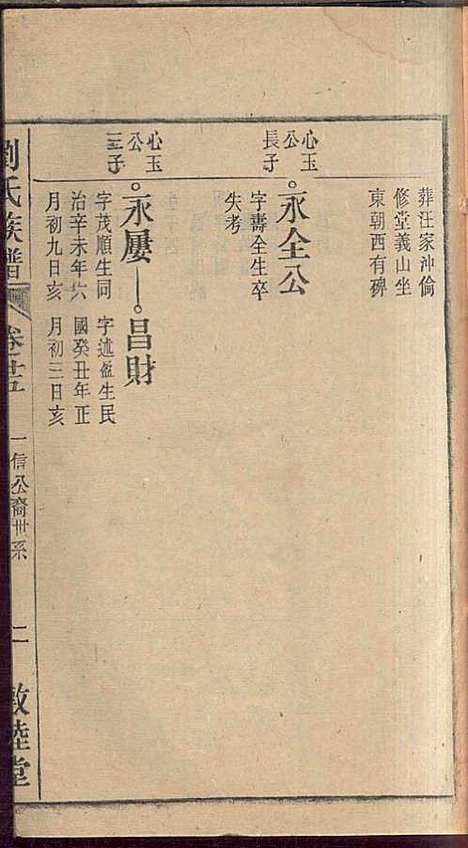 葬汪家沖倫
修堂義山坐
東朝西有碑
心玉
公
長子
永全公
字壽全生卒
失考
心玉
公
三子
永屢
昌財
字茂順生同
治辛未年六
月初九日亥
字述盈生民
國癸丑年正
月初三日亥
劉氏族譜
卷廿五
一信公裔世系
二
敦睦堂